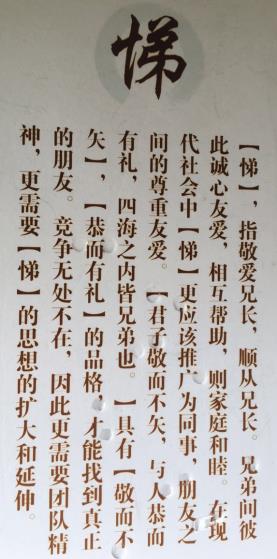 悌
【悌】，指敬爱兄长，顺从兄长。兄弟间彼
此诚心友爱，相互帮助，则家庭和睦。在现
代社会中【悌】更应该推广为同事，朋友之
间的尊重友爱。【君子敬而不矢，与人恭而
有礼，四海之内皆兄弟也。】具有【敬而不
矢】，【恭而有礼】的品格，才能找到真正
的朋友。竞争无处不在，因此更需要团队精
神，更需要【悌】的思想的扩大和延伸。